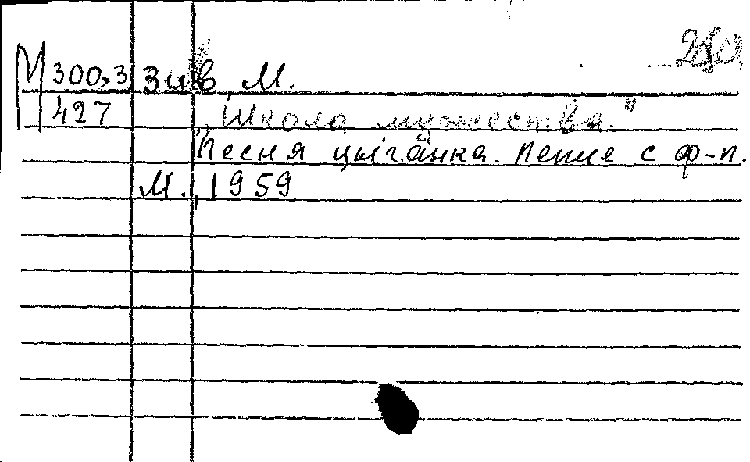 М 300,3 Зив, М.
427 „Школа мужества."
Песня цыганка. Пение с ф-п.
М., 1959